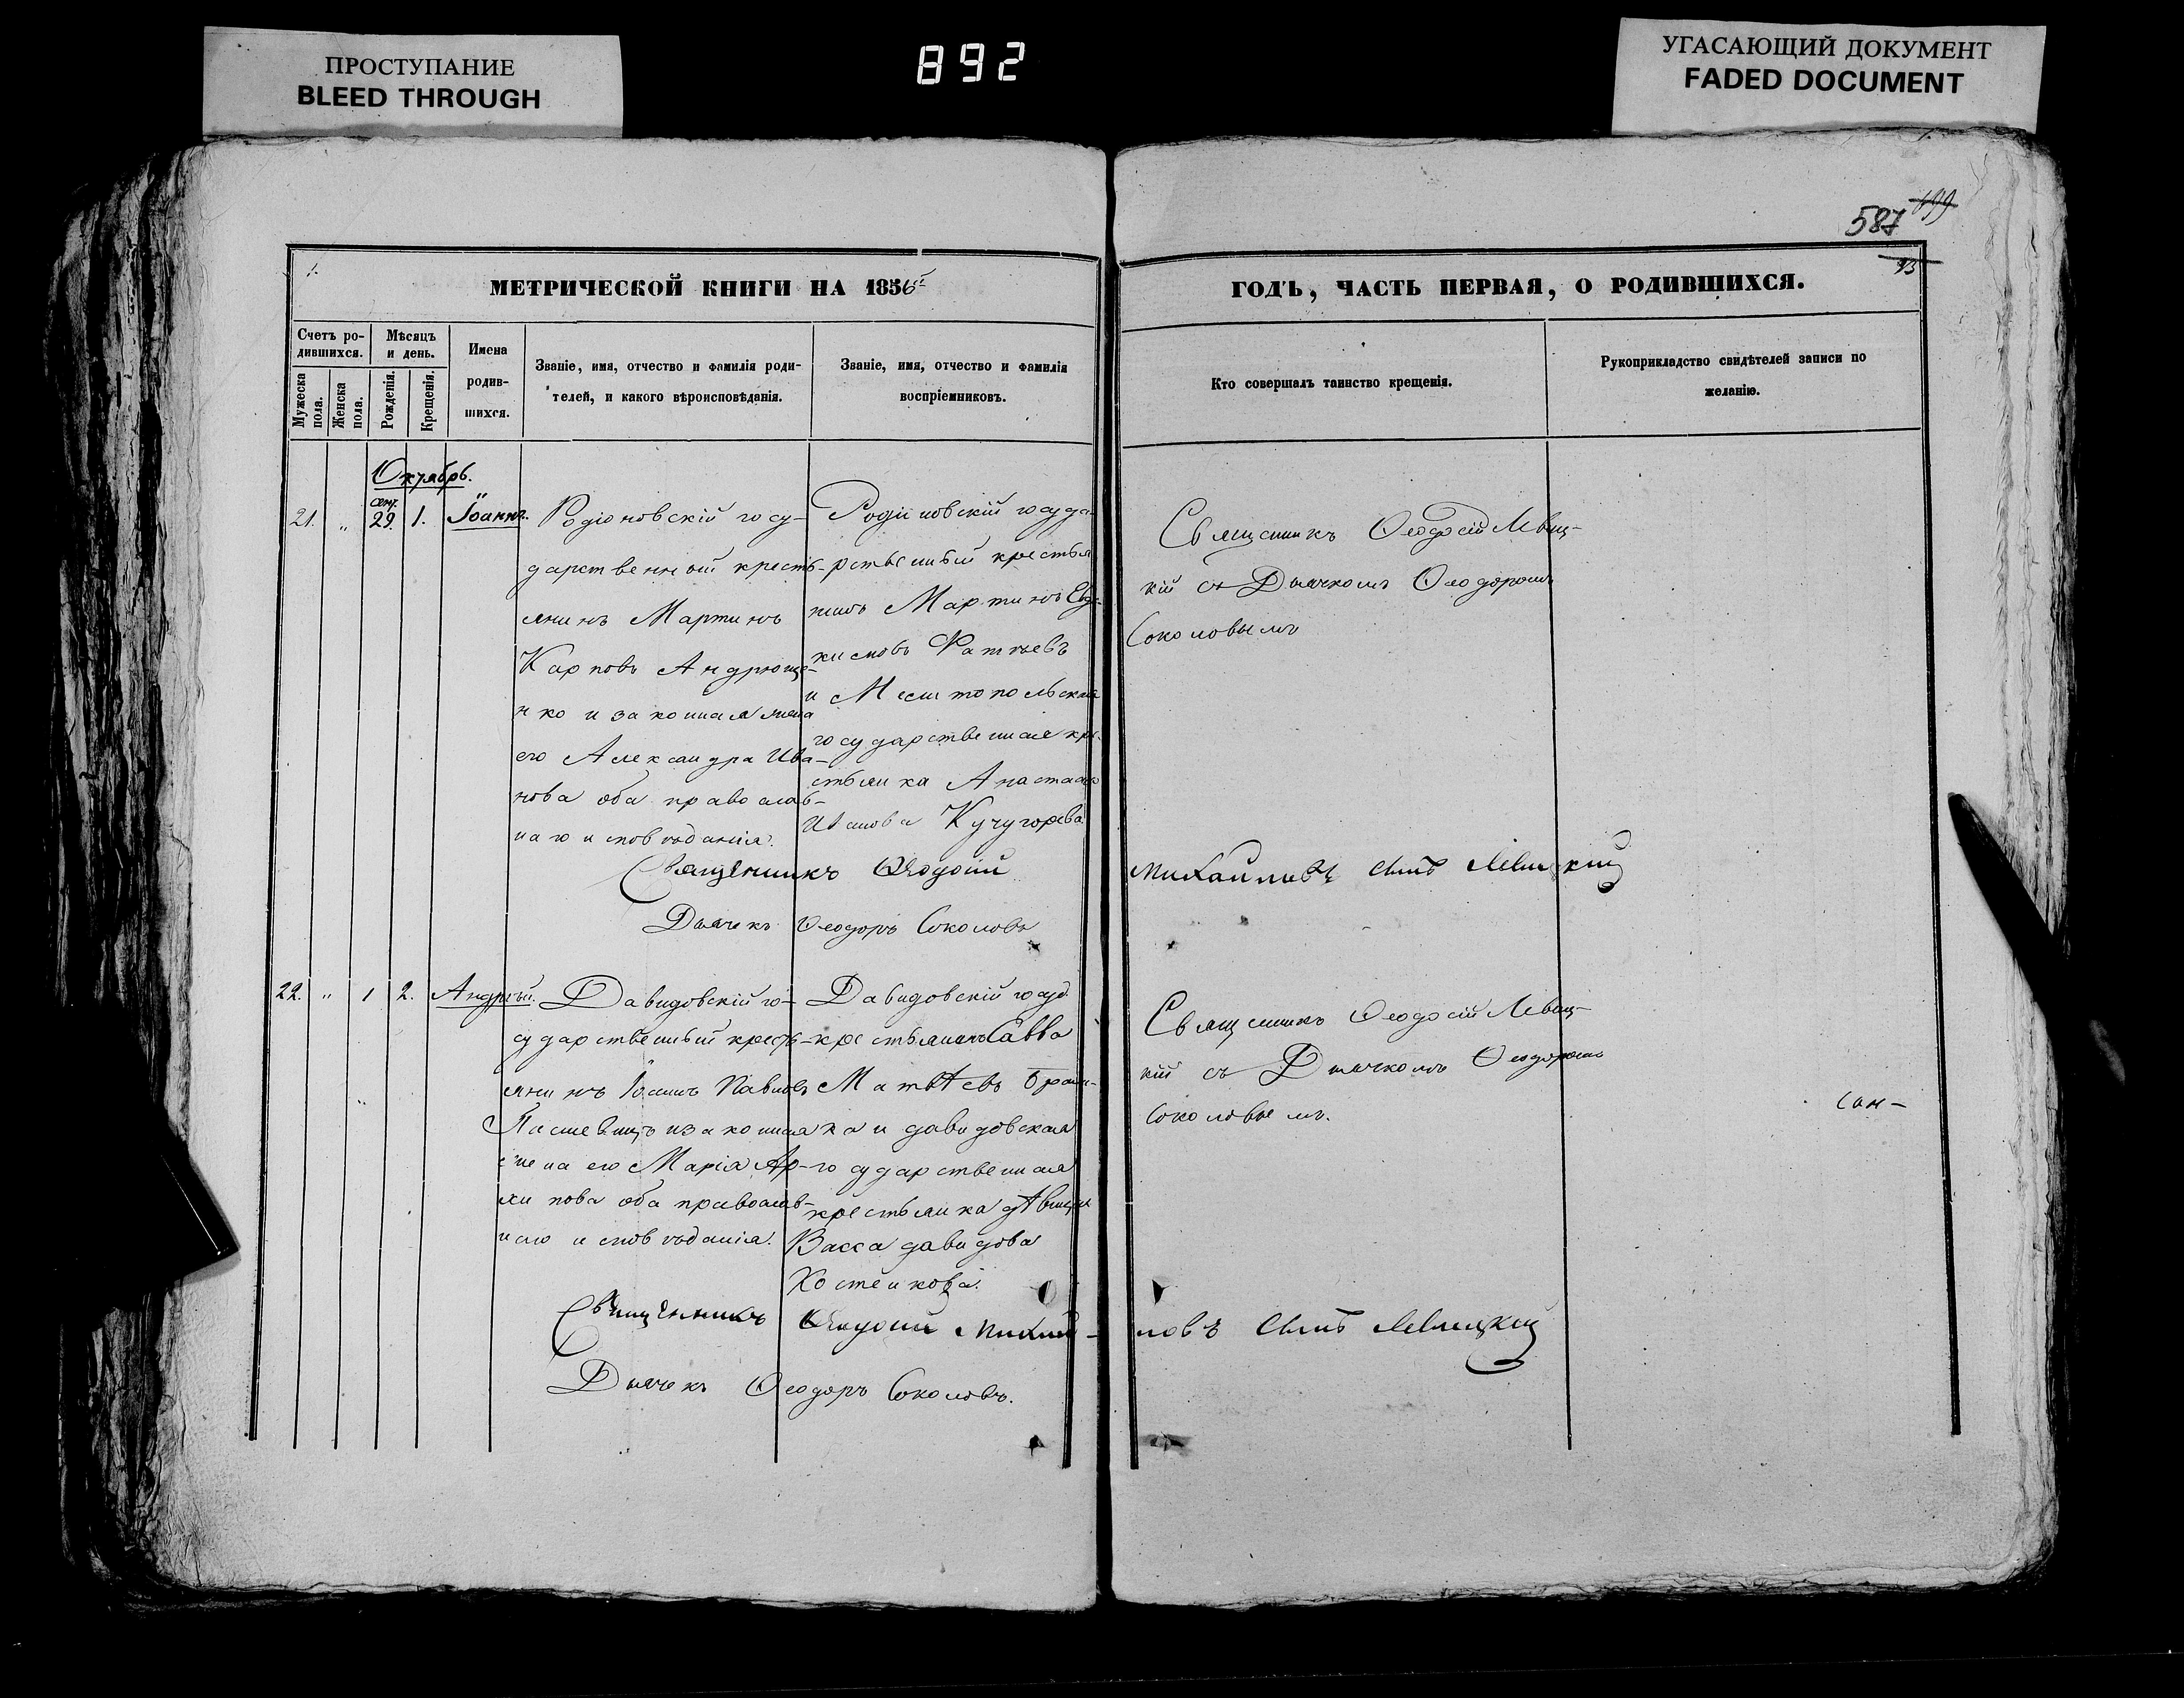 ПРОСТУПАНИЕ
BLEED THROUGH
892
УГАСАЮЩИЙ ДОКУМЕНТ
FADED DOCUMENT
587
93
МЕТРИЧЕСКОЙ КНИГИ НА 1856
ГОДЪ, ЧАСТЬ ПЕРВАЯ, О РОДИВШИХСЯ.
Счетъ ро-
дившихся.
Мужеска
пола.
Женска
пола.
Мѣсяцъ
и день.
Рожденія.
Крещенія.
Имена
родив-
шихся.
Званіе, имя, отчество и фамилія роди-
телей, и какого вѣроисповѣданія.
Званіе, имя, отчество и фамилія
воспріемниковъ.
Кто совершалъ таинство крещенія.
Рукоприкладство свидѣтелей записи по
желанію.
Октябрь.
21. " сент. 29. 1. Іоаннъ.
Родіоновскій госу-
дарственный кресть-
янинъ Мартинъ
Карповъ Андрюще-
нко и законная жена
его Александра Ива-
нова оба православ-
наго исповѣданія.
Родіоновскій госуда-
рственный крестья
нинъ Мартинъ
Фатѣевъ
и Мелитопольская
государственная кре-
стьянка Анастасія
Иванова Кучугорева
Священникъ Ѳеодосій Левиц-
кій съ Дьячкомъ Ѳеодоромъ
Соколовымъ
Священникъ Ѳеодосій Михайловъ сынъ Левицкій
Дьячекъ Ѳеодоръ Соколовъ
22. " 1 2. Андрей.
Давидовскій го-
сударственный кресть-
янинъ Іоаннъ Павловъ
и законная
жена его Марія Ар-
хипова оба православ-
наго исповѣданія.
Давидовскій госуд.
крестьянинъ Савва
Матвѣевъ
ка и давидовская
государственная
крестьянка дѣвица
Васса давидова
Костенкова.
Священникъ Ѳеодосій Левиц-
кій съ Дьячкомъ Ѳеодоромъ
Соколовымъ.
Священникъ Ѳеодосій Михай-
ловъ сынъ Левицкій
Дьячекъ Ѳеодоръ Соколовъ.